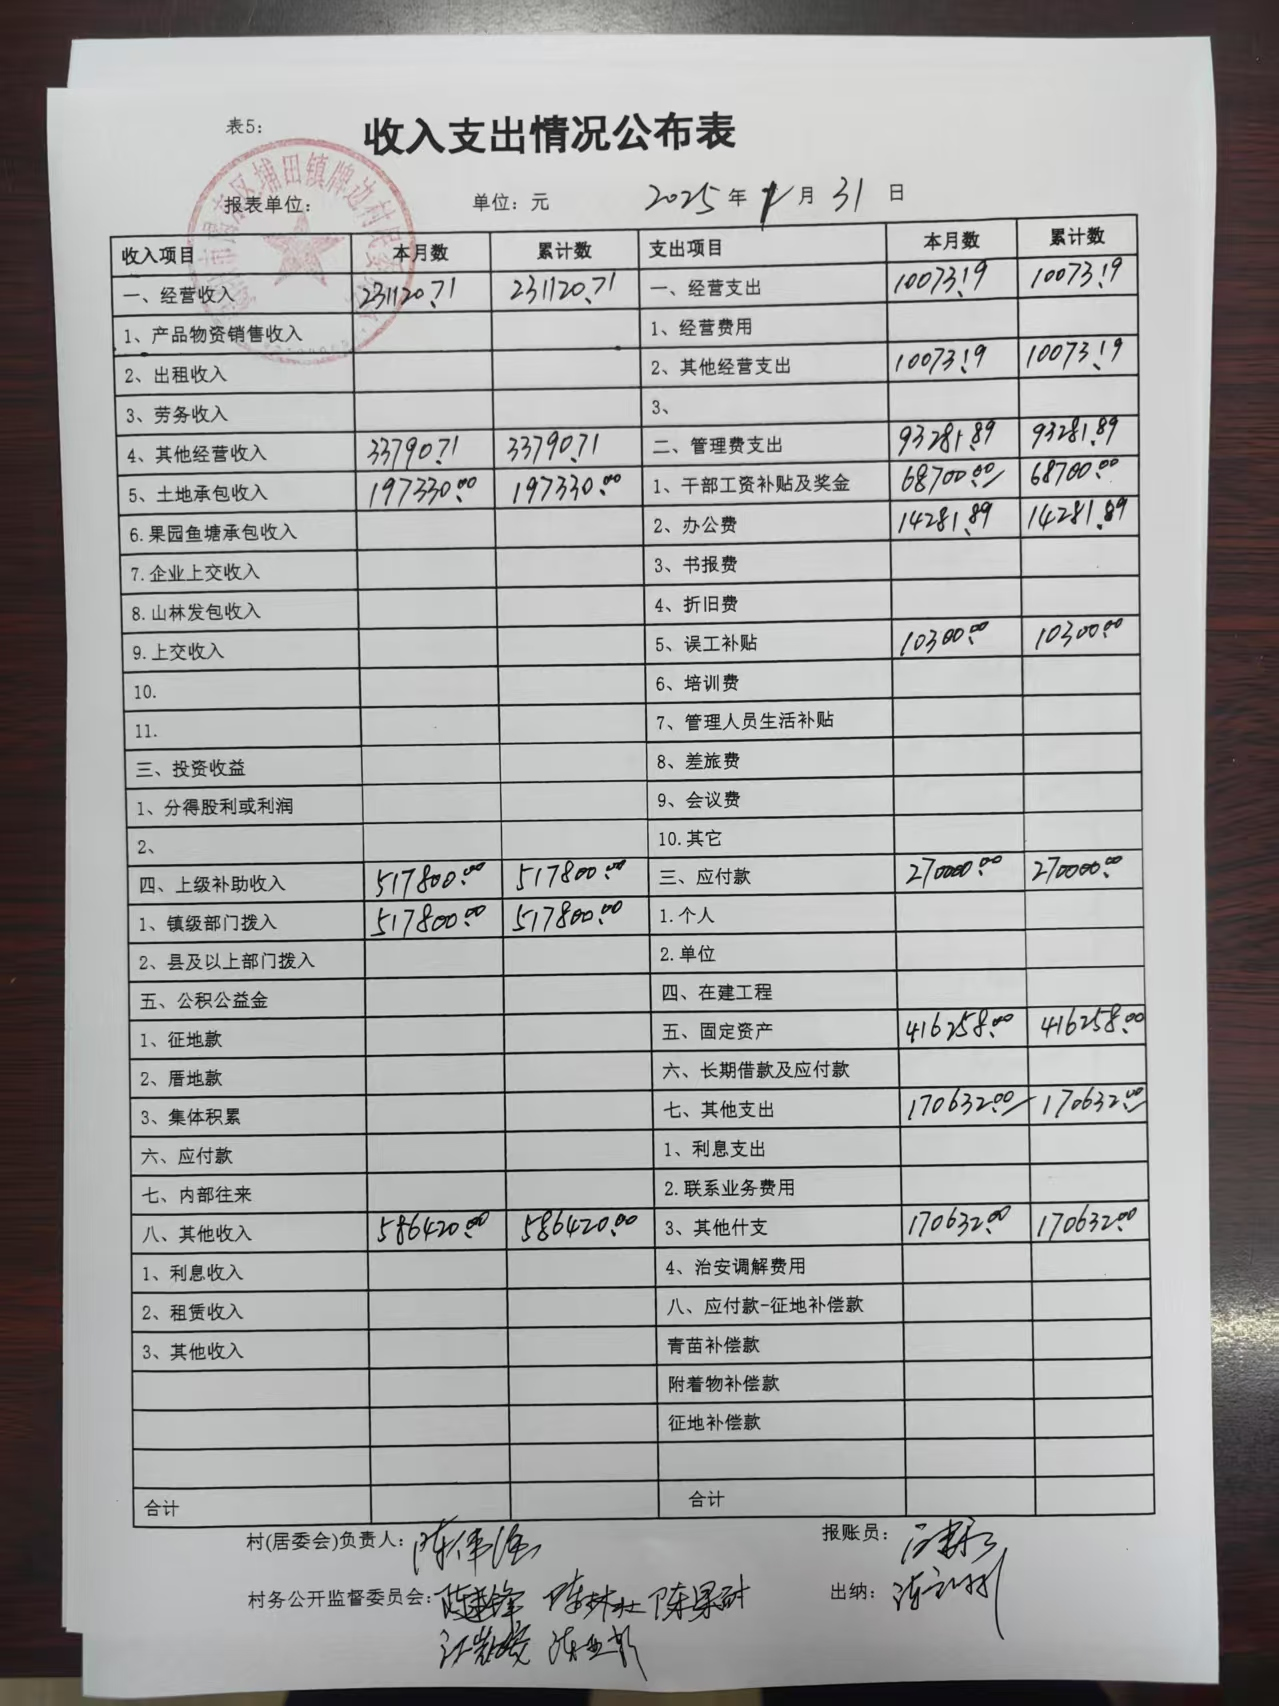 表5：
收入支出情况公布表
报表单位： 单位：元 2025年1月31日
收入项目 本月数 累计数 支出项目 本月数 累计数
一、经营收入 231120.71 231120.71 一、经营支出 10073.19 10073.19
1、产品物资销售收入 1、经营费用
2、出租收入 2、其他经营支出 10073.19 10073.19
3、劳务收入 3、
4、其他经营收入 33790.71 33790.71 二、管理费支出 93281.89 93281.89
5、土地承包收入 197330.00 197330.00 1、干部工资补贴及奖金 68700.00 68700.00
6.果园鱼塘承包收入 2、办公费 14281.89 14281.89
7.企业上交收入 3、书报费
8.山林发包收入 4、折旧费
9.上交收入 5、误工补贴 10300.00 10300.00
10. 6、培训费
11. 7、管理人员生活补贴
三、投资收益 8、差旅费
1、分得股利或利润 9、会议费
2、 10.其它
四、上级补助收入 517800.00 517800.00 三、应付款 270000.00 270000.00
1、镇级部门拨入 517800.00 517800.00 1.个人
2、县及以上部门拨入 2.单位
五、公积公益金 四、在建工程
1、征地款 五、固定资产 416258.00 416258.00
2、厝地款 六、长期借款及应付款
3、集体积累 七、其他支出 170632.00 170632.00
六、应付款 1、利息支出
七、内部往来 2.联系业务费用
八、其他收入 586420.00 586420.00 3、其他什支 170632.00 170632.00
1、利息收入 4、治安调解费用
2、租赁收入 八、应付款-征地补偿款
3、其他收入 青苗补偿款
附着物补偿款
征地补偿款
合计 合计
村(居委会)负责人：陈伟强 报账员：
村务公开监督委员会： 出纳：